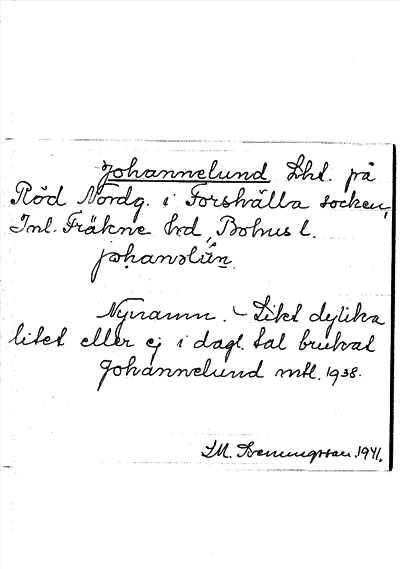 Johannelund Lht. på
Röd Nordg. i Forshälla socken,
Inl. Fräkne hd, Bohusl.
Nynamn. – Likt dylika
litet eller ej i dagl. tal brukat
Johannelund mtl. 1938.
1941.